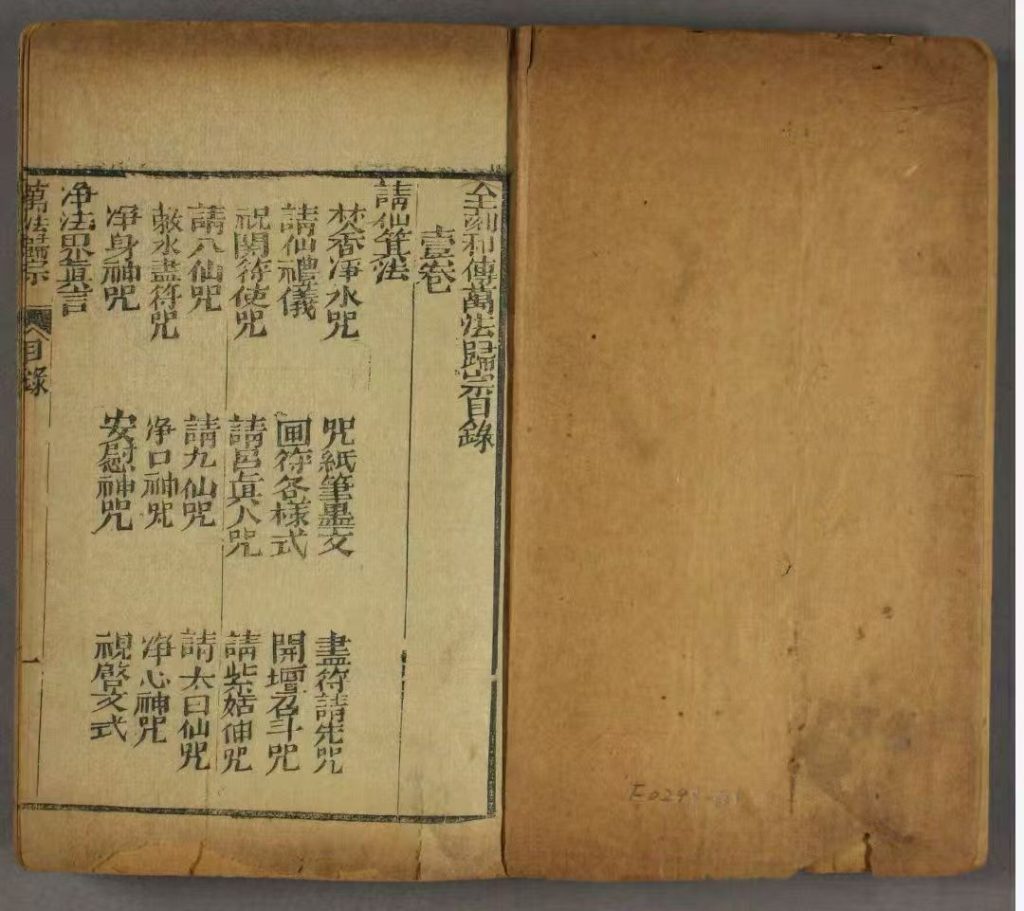 全刻和傳萬法歸宗目錄
壹卷
請仙箕法
焚香净水咒 咒紙筆墨文 畫符請先咒
請仙禮儀 画符各樣式 開壇召斗咒
祝開符使咒 請呂眞人咒 請紫姑伸咒
請八仙咒 請九仙咒 請太白仙咒
敕水畫符咒 净口神咒 净心神咒
净身神咒 安慰神咒 視啓文式
净法界眞言
萬法歸宗 目錄 一
E029